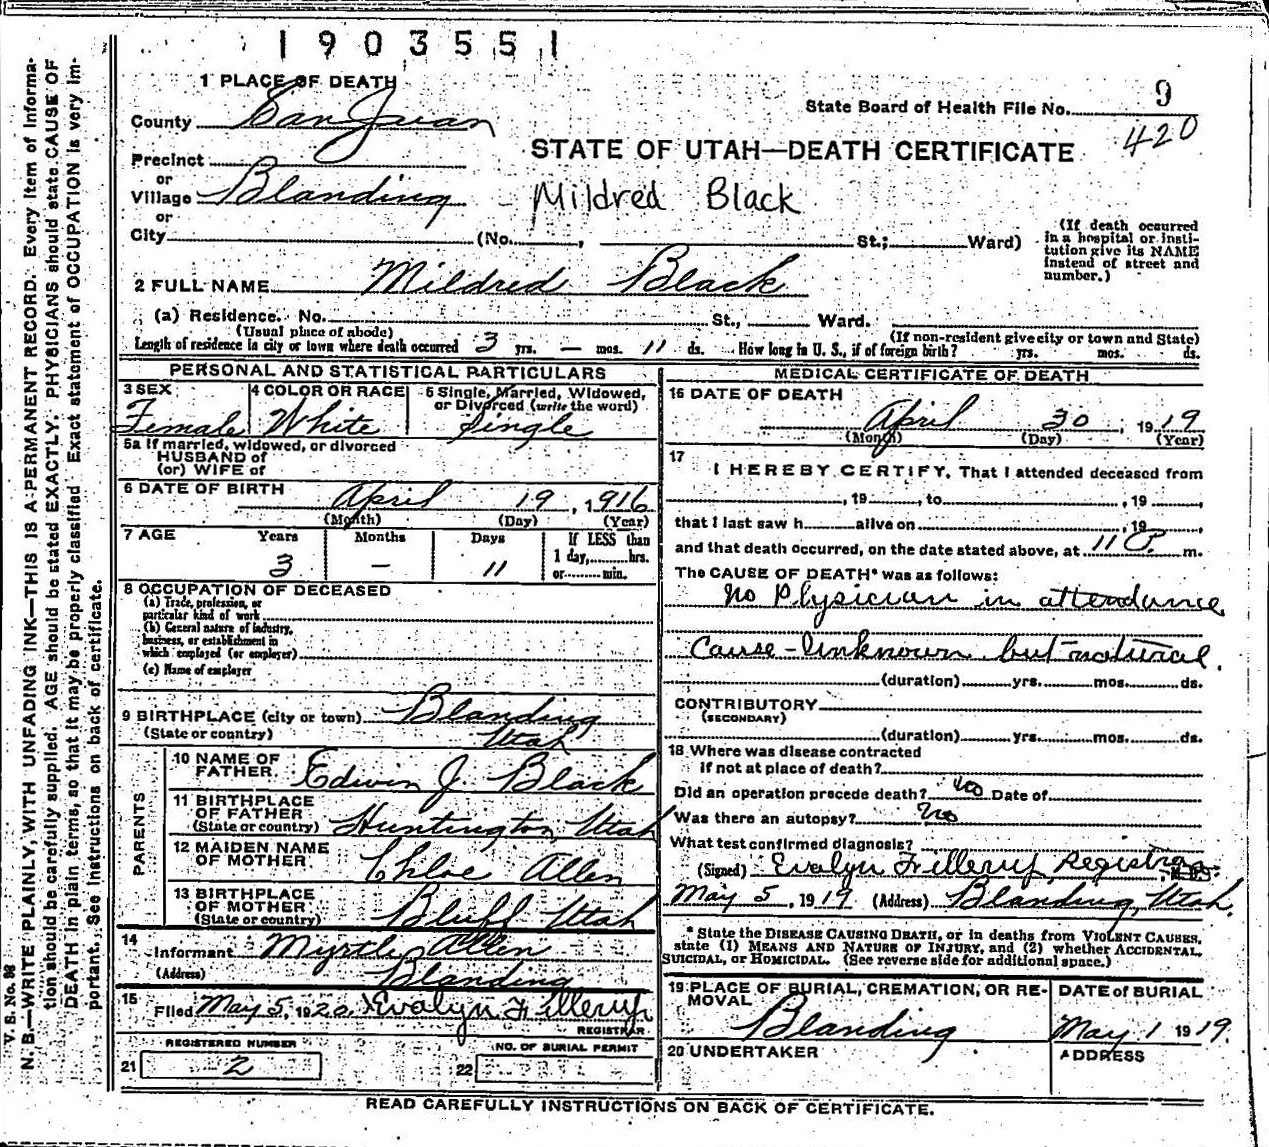 1903551
1 PLACE OF DEATH
State Board of Health File No. 9
420
County San Juan
STATE OF UTAH—DEATH CERTIFICATE
Precinct
or
Village Blanding
Mildred Black
or
City (No. , St.; Ward)
(If death occurred in a hospital or institution give its NAME instead of street and number.)
2 FULL NAME Mildred Black
(a) Residence. No. St., Ward.
(Usual place of abode) (If non-resident give city or town and State)
Length of residence in city or town where death occurred 3 yrs. — mos. 11 ds. How long in U. S., if of foreign birth? yrs. mos. ds.
PERSONAL AND STATISTICAL PARTICULARS
3 SEX 4 COLOR OR RACE 5 Single, Married, Widowed, or Divorced (write the word)
Female White Single
5a If married, widowed, or divorced
HUSBAND of
(or) WIFE of
6 DATE OF BIRTH April 19, 1916
(Month) (Day) (Year)
7 AGE Years Months Days If LESS than
1 day, hrs.
or min.
3 — 11
8 OCCUPATION OF DECEASED
(a) Trade, profession, or
particular kind of work
(b) General nature of industry,
business, or establishment in
which employed (or employer)
(c) Name of employer
9 BIRTHPLACE (city or town) Blanding
(State or country) Utah
PARENTS
10 NAME OF
FATHER Edwin J. Black
11 BIRTHPLACE
OF FATHER
(State or country) Huntington, Utah
12 MAIDEN NAME
OF MOTHER Chloe Allen
13 BIRTHPLACE
OF MOTHER
(State or country) Bluff Utah
14
Informant Myrtle Allen
(Address) Blanding
15
Filed May 5, 1920 Evalyn Fillerup
REGISTRAR
REGISTERED NUMBER NO. OF BURIAL PERMIT
21 2 22
MEDICAL CERTIFICATE OF DEATH
16 DATE OF DEATH
April 30, 1919
(Month) (Day) (Year)
17
I HEREBY CERTIFY, That I attended deceased from
, 19 , to , 19 ,
that I last saw h alive on , 19 ,
and that death occurred, on the date stated above, at 11 P. m.
The CAUSE OF DEATH* was as follows:
No Physician in attendance
Cause - Unknown but natural.
(duration) yrs. mos. ds.
CONTRIBUTORY
(SECONDARY)
(duration) yrs. mos. ds.
18 Where was disease contracted
if not at place of death?
Did an operation precede death? no Date of
Was there an autopsy? no
What test confirmed diagnosis?
(Signed) Evalyn Fillerup Registrar
May 5, 1919 (Address) Blanding, Utah.
* State the DISEASE CAUSING DEATH, or in deaths from VIOLENT CAUSES,
state (1) MEANS AND NATURE OF INJURY, and (2) whether ACCIDENTAL,
SUICIDAL, or HOMICIDAL. (See reverse side for additional space.)
19 PLACE OF BURIAL, CREMATION, OR RE-
MOVAL DATE of BURIAL
Blanding May 1 1919.
20 UNDERTAKER ADDRESS
READ CAREFULLY INSTRUCTIONS ON BACK OF CERTIFICATE.
V. S. No. 98
N. B.—WRITE PLAINLY, WITH UNFADING INK—THIS IS A PERMANENT RECORD. Every item of informa-
tion should be carefully supplied. AGE should be stated EXACTLY. PHYSICIANS should state CAUSE OF
DEATH in plain terms, so that it may be properly classified. Exact statement of OCCUPATION is very im-
portant. See instructions on back of certificate.